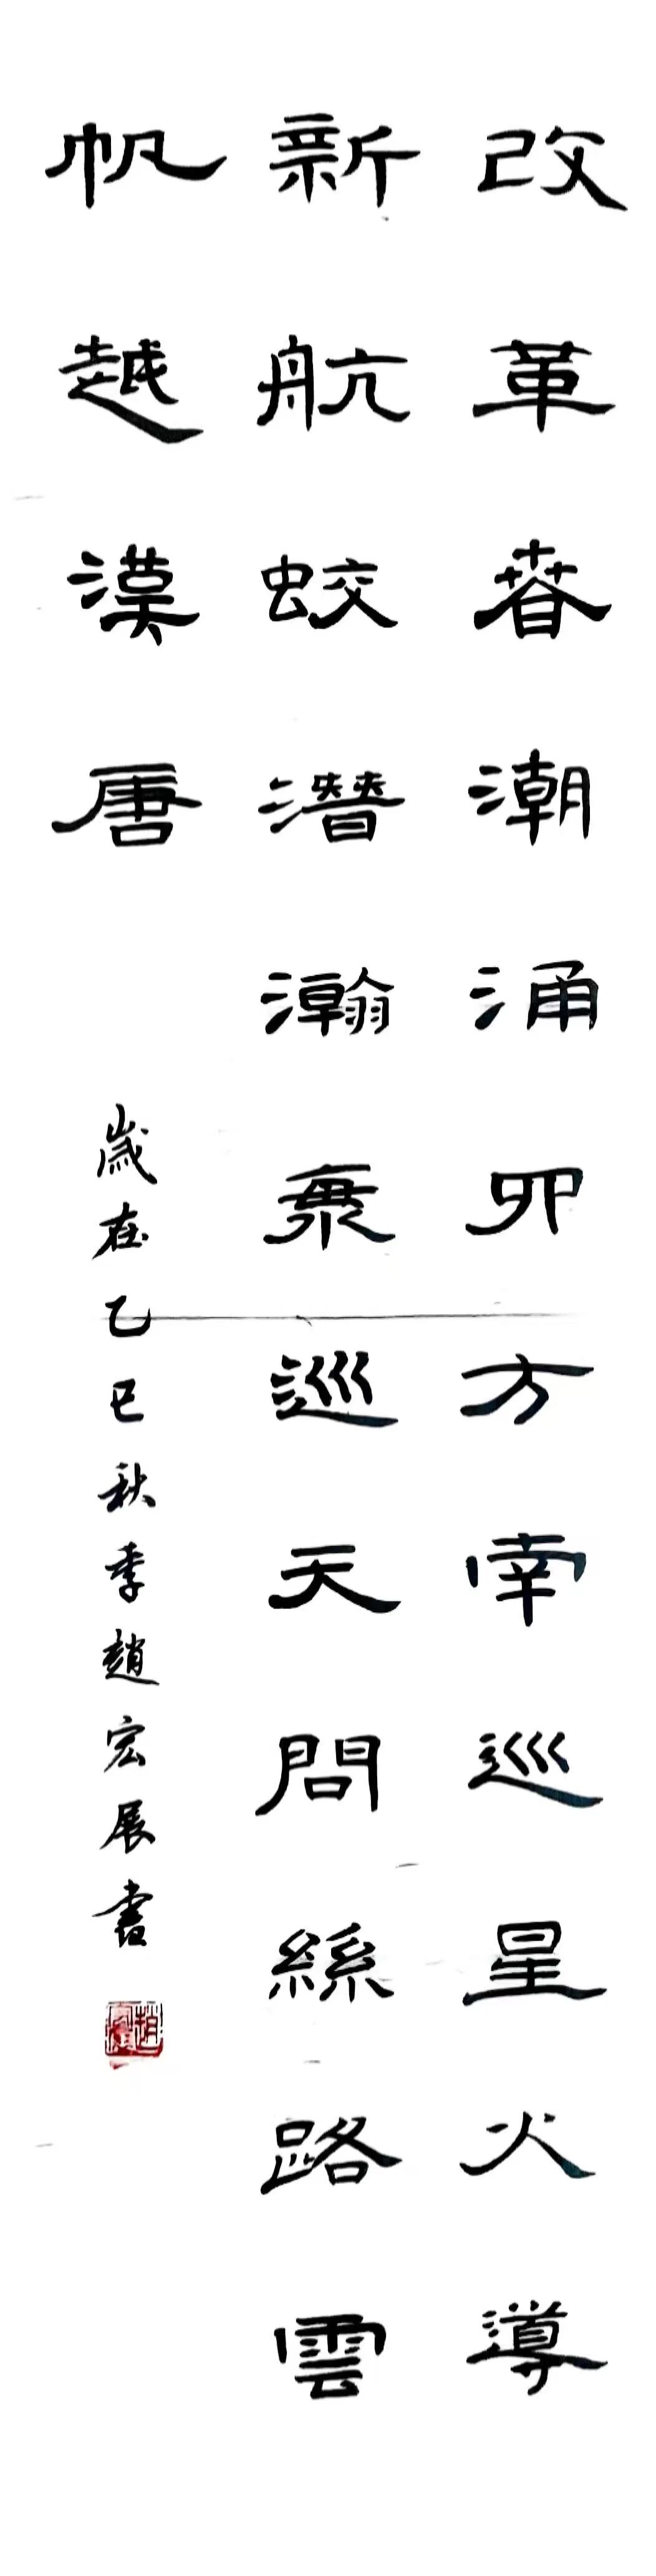 改革春潮涌四方南巡星火導
新航蛟潛瀚海巡天問絲路雲
帆越漢唐
歲在乙巳秋季趙宏展書